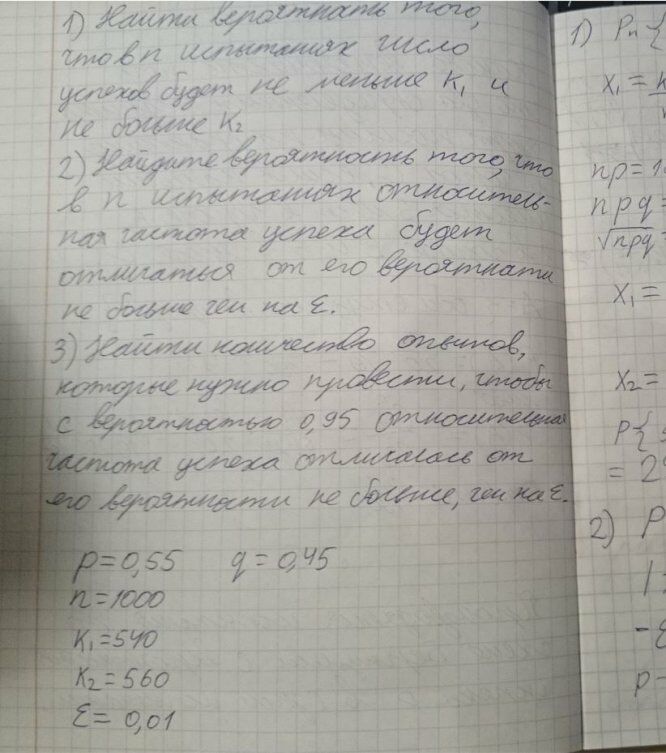 1) Найти вероятность того,
что в n испытаниях число
успехов будет не меньше K₁ и
не больше K₂
2) Найдите вероятность того, что
в n испытаниях относитель-
ная частота успеха будет
отличаться от его вероятности
не больше чем на ε.
3) Найти количество опытов,
которые нужно провести, чтобы
с вероятностью 0,95 относительная
частота успеха отличалась от
его вероятности не больше, чем на ε.
p=0,55 q=0,45
n=1000
K₁=540
K₂=560
ε=0,01
1) Pₙ{
X₁=
np=1
npq=
√npq
X₁=
X₂=
P{
=2
2) P
|
-ε
p-